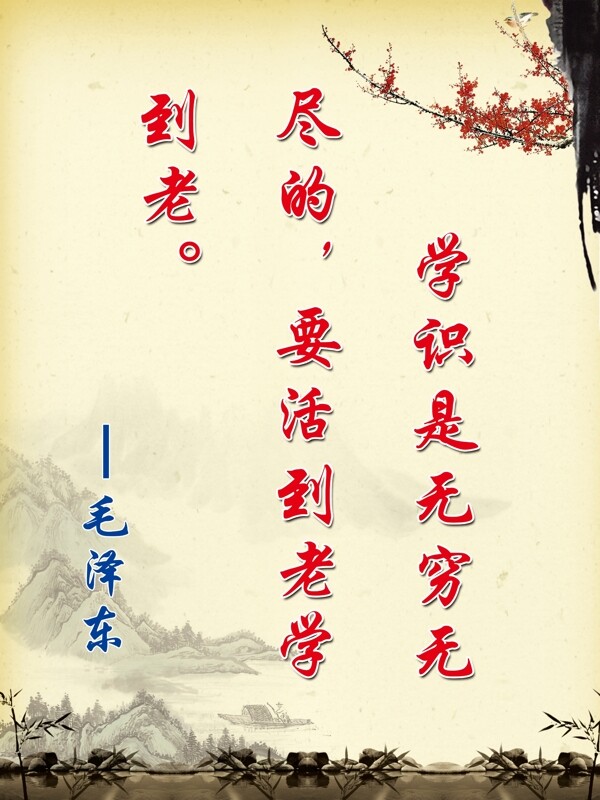 学识是无穷无
尽的，要活到老学
到老。
—毛泽东